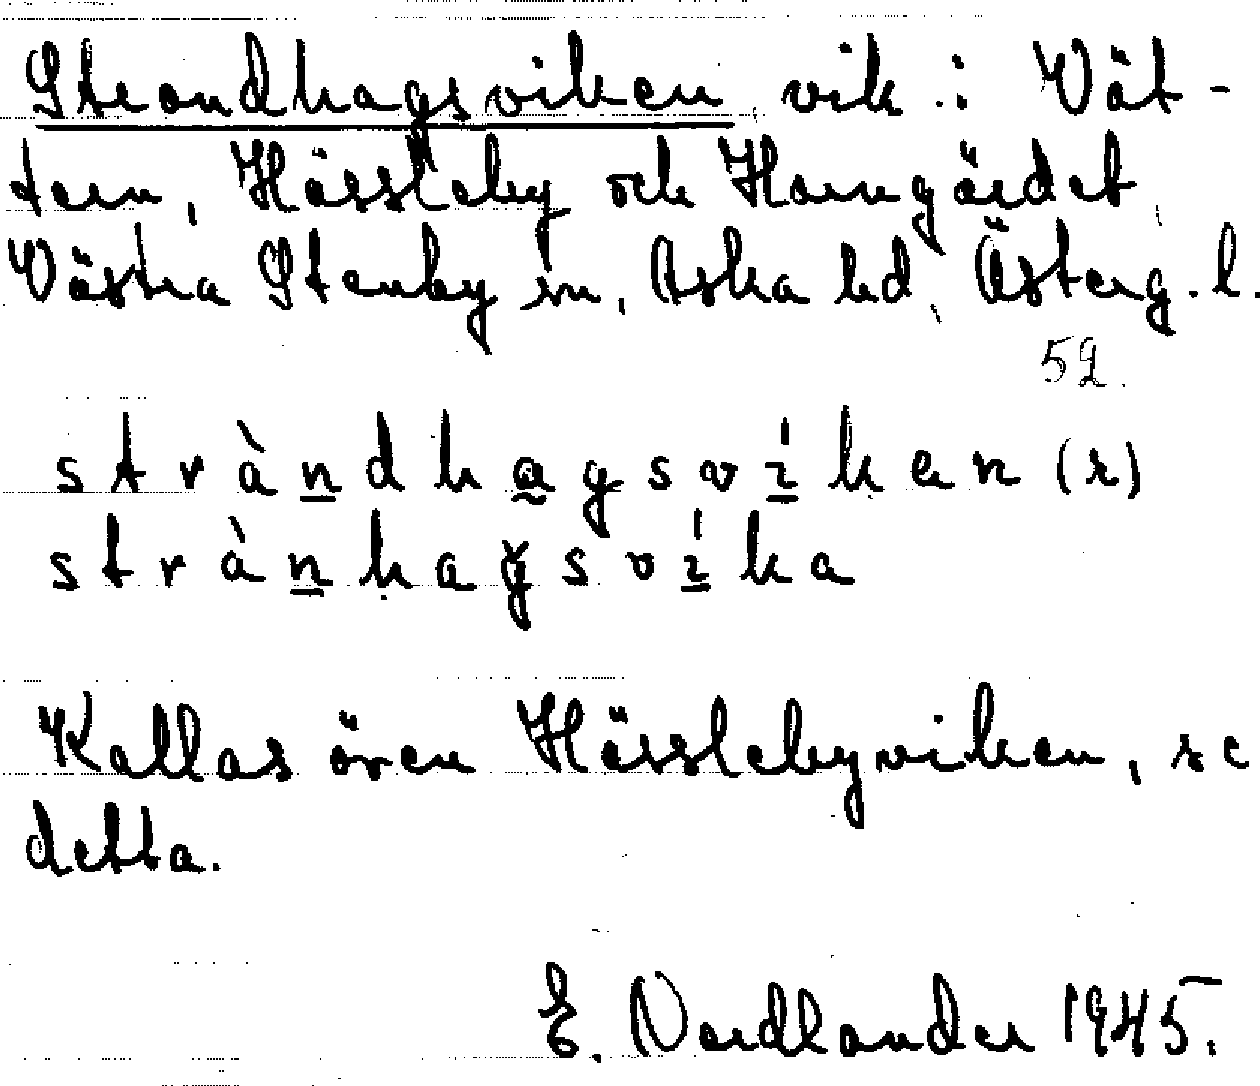 Strandhagsviken vik i Vät-
tern, Hässleby och Hamngärdet
Västra Stenby sn, Aska hd, Österg. l.
52.
stràndhagsvíken (r)
strànhagsvíka
Kallas även Hässlebyviken, se
detta.
E. Nordlander 1945.